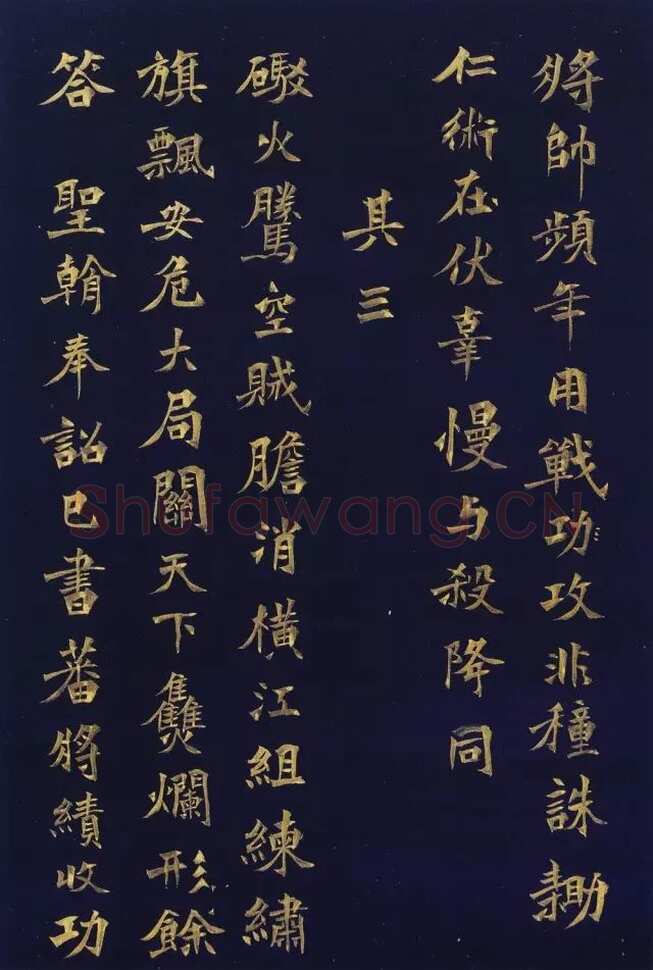 將帥頻年用戰功攻非種誅勦
仁術在伏辜慢与殺降同
其三
礮火騰空賊膽消橫江組練繡
旗飄安危大局關天下雙爛形餘
答 聖翰奉詔已書蕃將績收功
Shufawang.CN